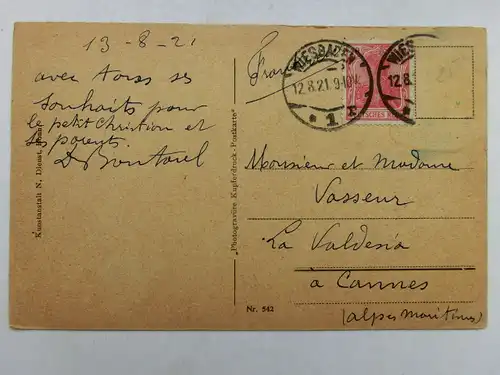 13-8-21
avec tous ses
souhaits pour
le petit Christian et
ses parents.
Kunstanstalt N,
"Photogravüre Kupferdruck-Postkarte"
WIESBADEN
12.8.21.9-10V.
* 1
WIES
12.8.
Monsieur et Madame
Vasseur
La Valdesia
à Cannes
(alpes maritimes)
Nr. 542